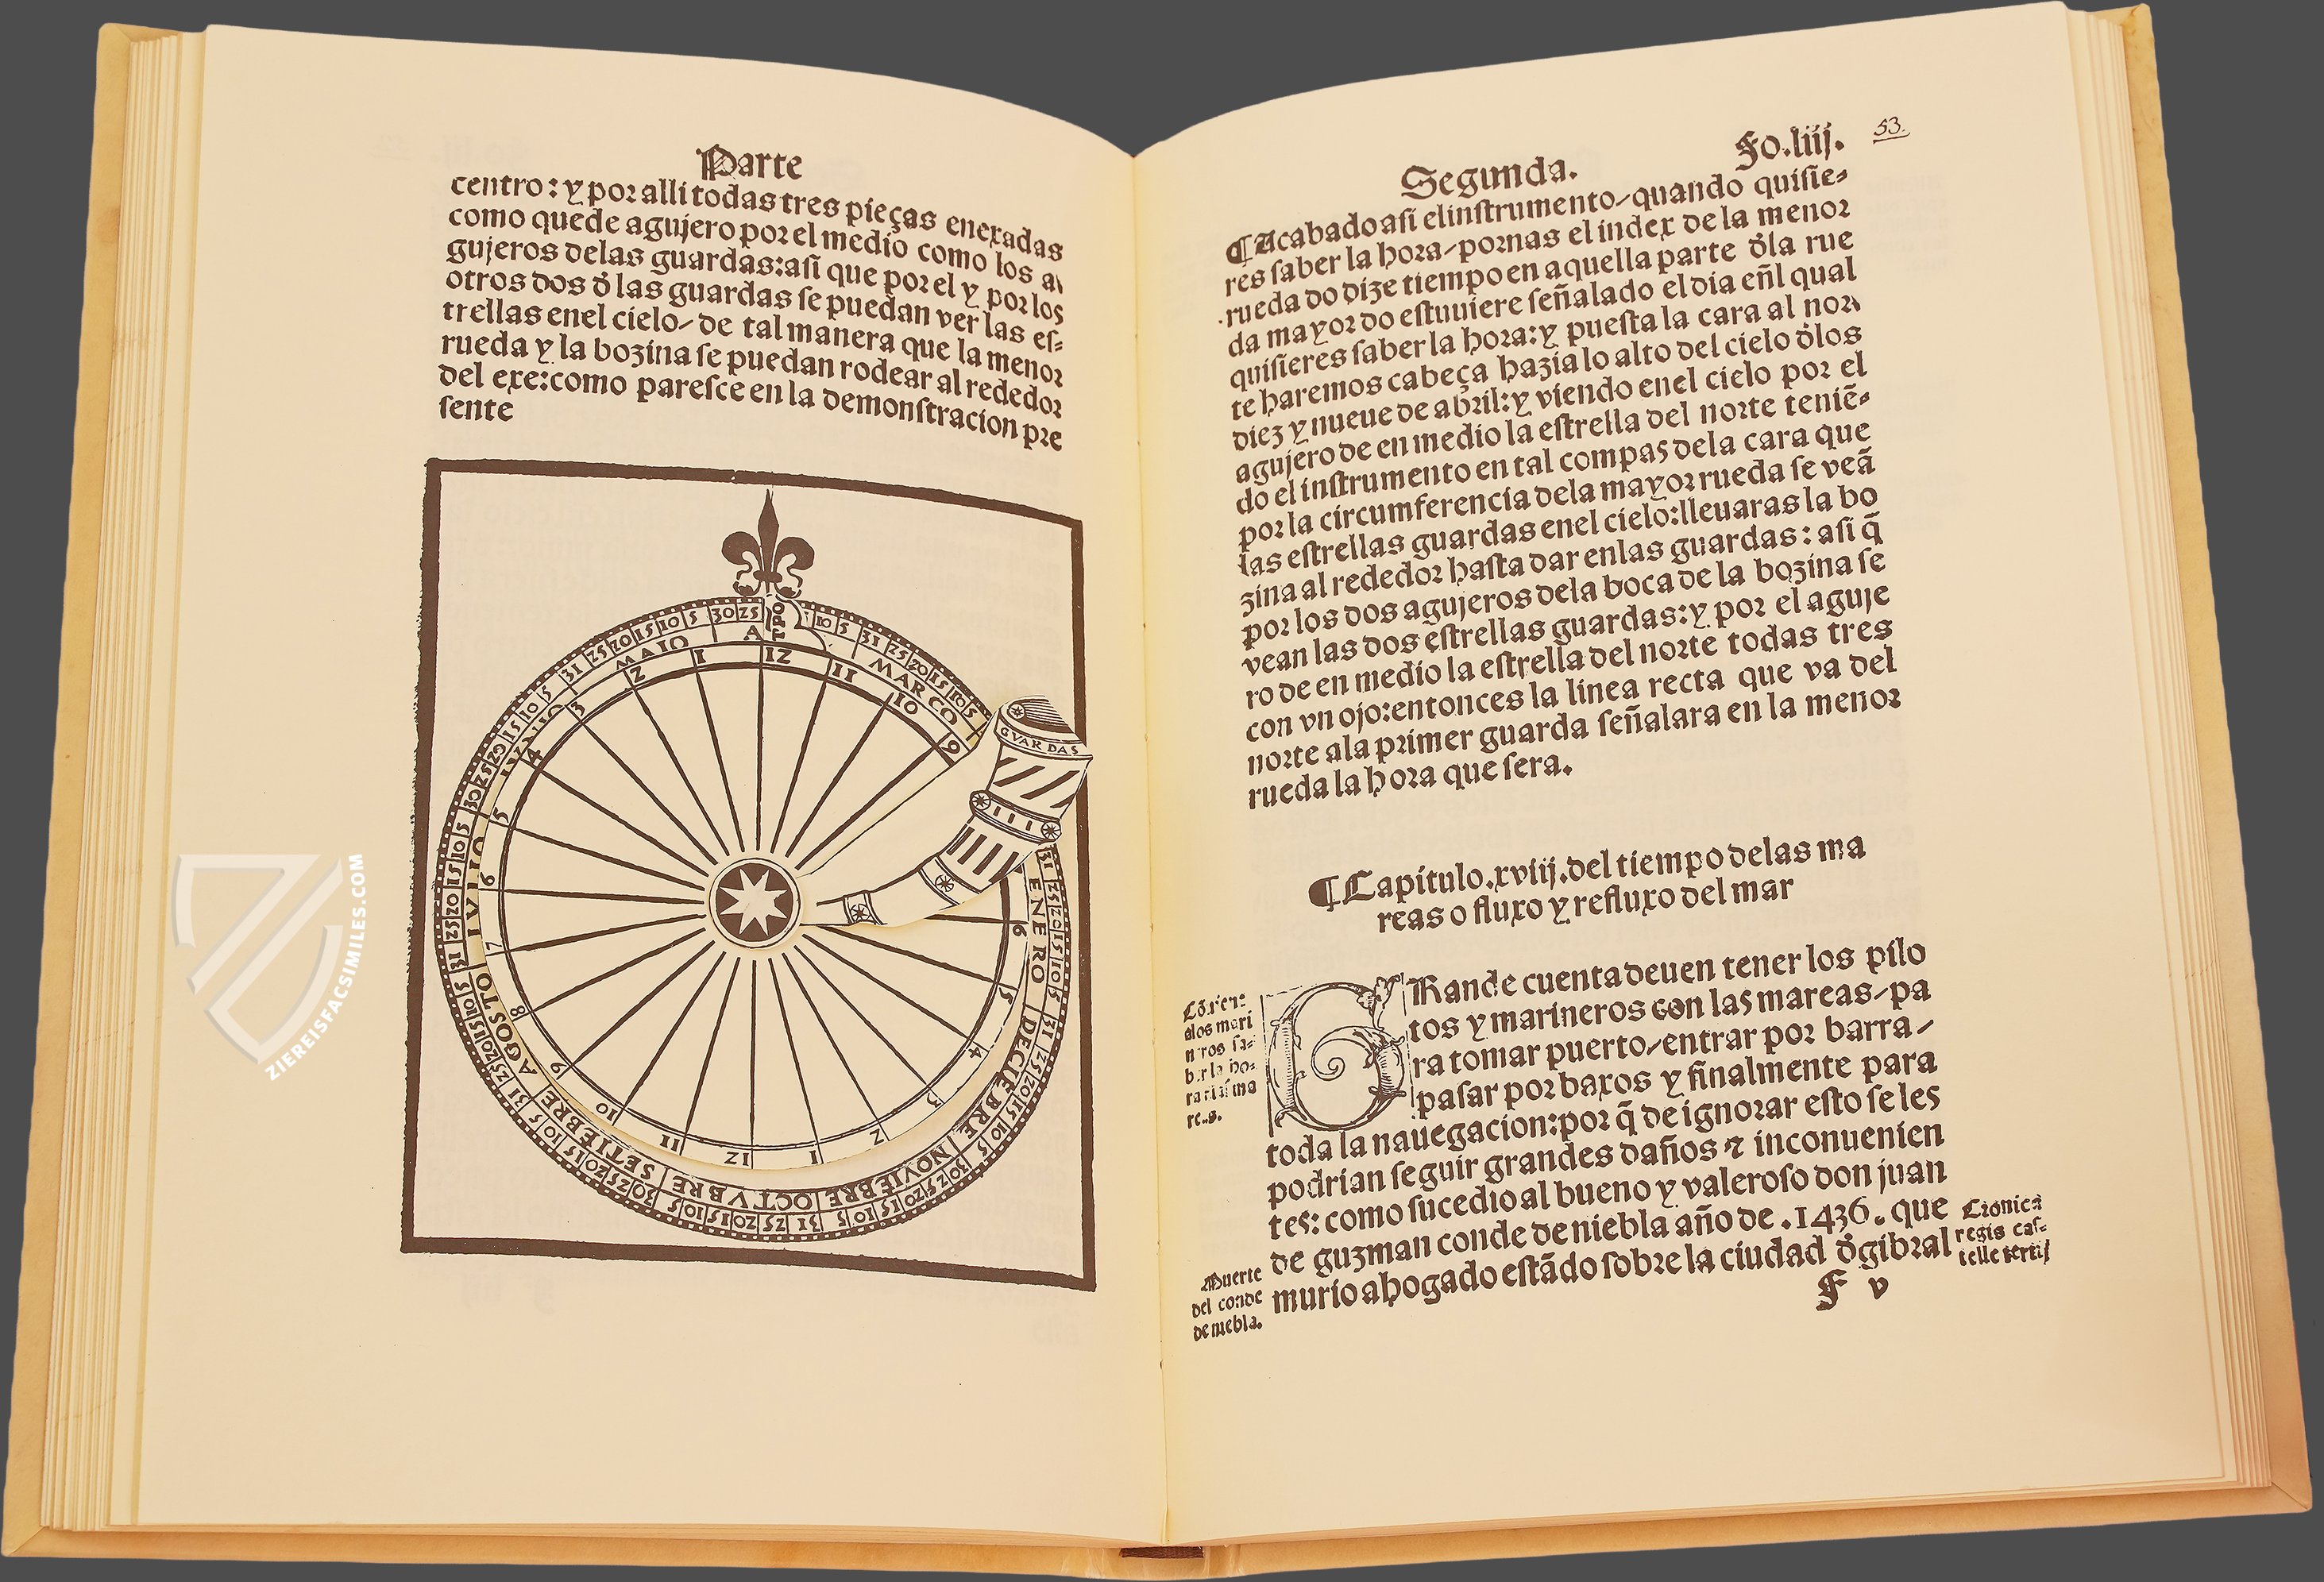 Parte
centro: y por alli todas tres pieças enexadas
como quede agujero por el medio como los a
gujeros delas guardas: asi que por el y por los
otros dos d̃ las guardas se puedan ver las es-
trellas enel cielo/ de tal manera que la menor
rueda y la bozina se puedan rodear al rededor
del exe: como paresce en la demonstracion pre
sente
GVARDAS
TPO
MARCO
A
MAIO
IVLIO
AGOSTO
SETIEBRE
OCTVBRE
NOVIEBRE
DECIEBRE
ENERO
12
11
10
9
6
5
4
3
2
1
12
11
10
9
8
7
6
5
4
3
2
1
ZIEREISFACSIMILES.COM
Segunda.
Fo.liij.
53.
¶Acabado asi el instrumento/ quando quisie-
res saber la hora/ pornas el index de la menor
rueda do dize tiempo en aquella parte d̃la rue
da mayor do estuuiere señalado el dia eñl qual
quisieres saber la hora: y puesta la cara al nor
te haremos cabeça hazia lo alto del cielo d̃los
diez y nueue de abril: y viendo enel cielo por el
agujero de en medio la estrella del norte teniẽ-
do el instrumento en tal compas dela cara que
por la circumferencia dela mayor rueda se veã
las estrellas guardas enel cielo: lleuaras la bo
zina al rededor hasta dar en las guardas: asi q̃
por los dos agujeros dela boca de la bozina se
vean las dos estrellas guardas: y por el aguje
ro de en medio la estrella del norte todas tres
con vn ojo: entonces la linea recta que va del
norte ala primer guarda señalara en la menor
rueda la hora que sera.
¶Capitulo.xviij.del tiempo delas ma
reas o fluxo y refluxo del mar
GRande cuenta deuen tener los pilo
tos y marineros con las mareas/ pa
ra tomar puerto/ entrar por barra/
pasar por baxos y finalmente para
toda la nauegacion: por q̃ de ignorar esto se les
podrian seguir grandes daños ⁊ inconuenien
tes: como sucedio al bueno y valeroso don juan
de guzman conde de niebla año de .1436. que
murio ahogado estãdo sobre la ciudad d̃gibral
alos mari
Muerte
del conde
de niebla.
Cronica
regis cas-
telle tertij
F v